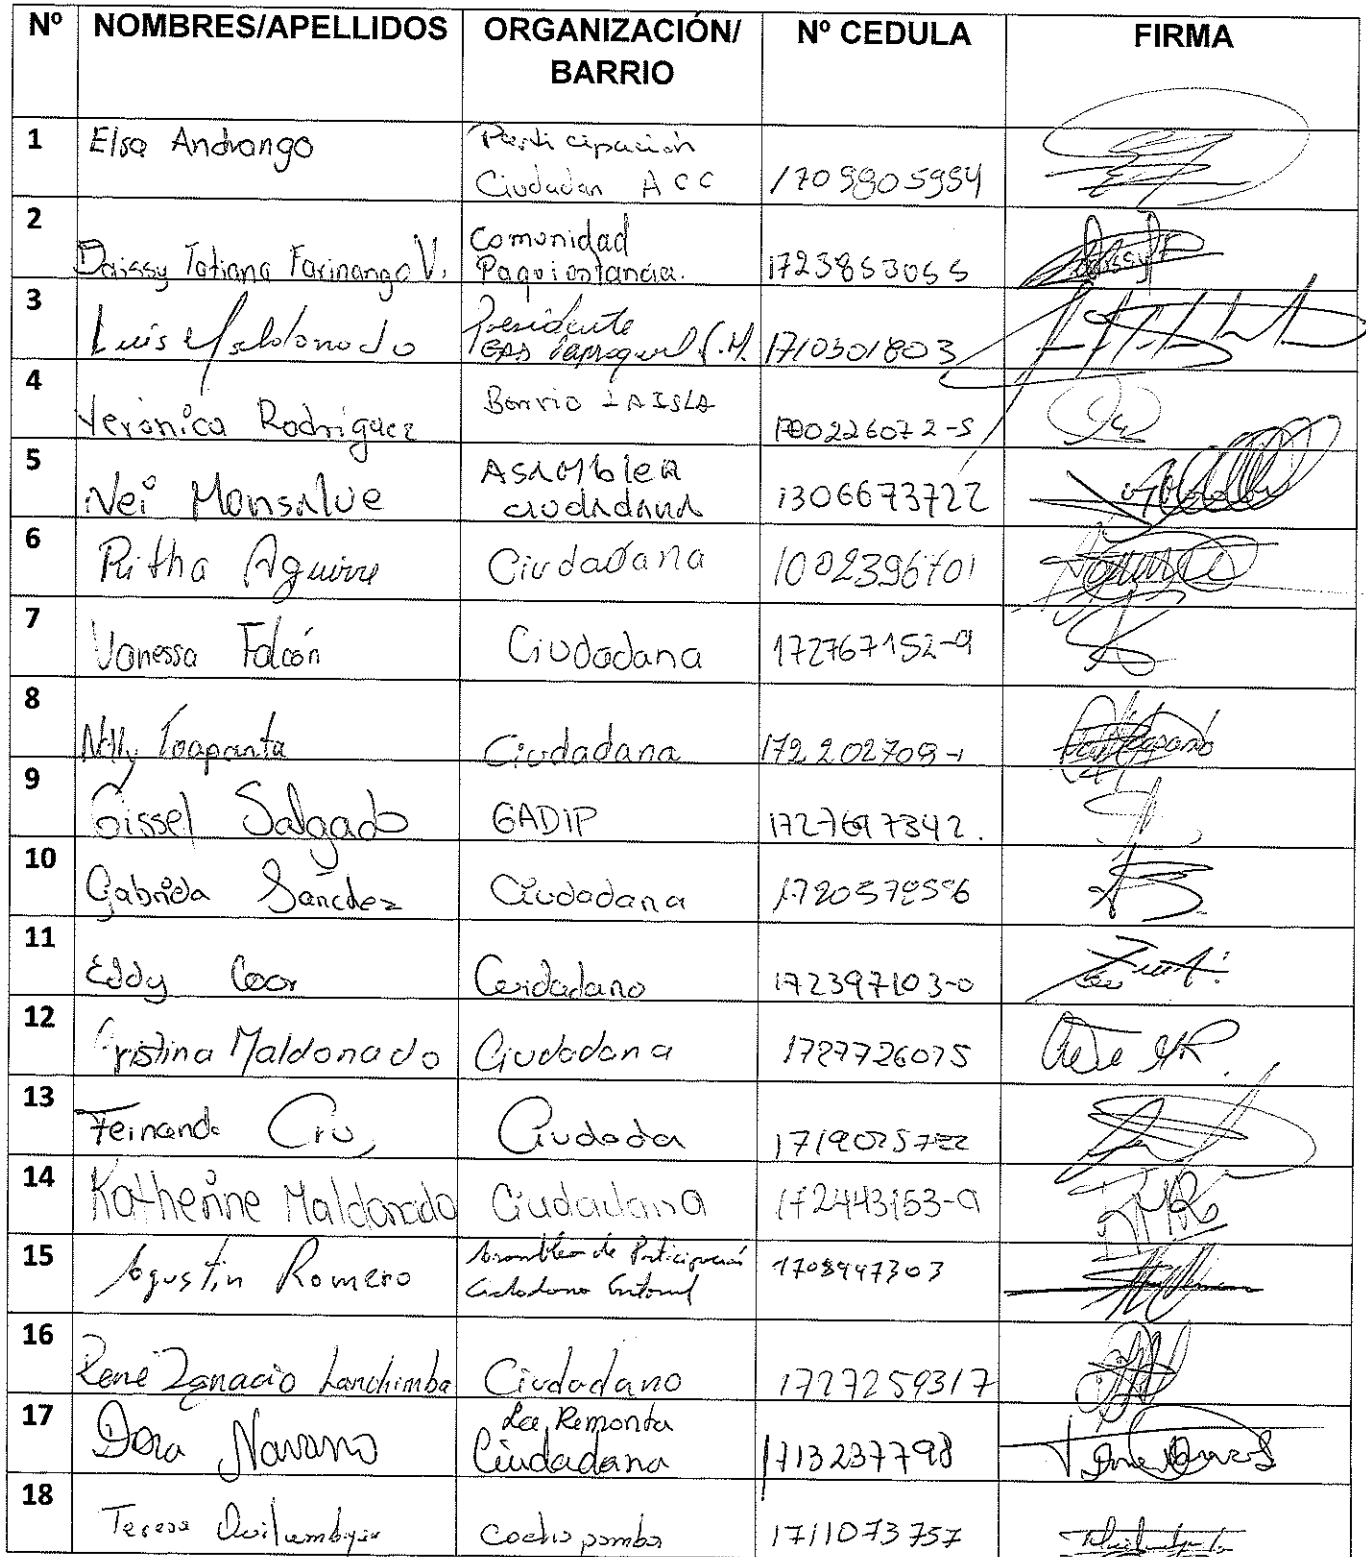 Nº NOMBRES/APELLIDOS ORGANIZACIÓN/ Nº CEDULA FIRMA
BARRIO
1 Elsa Andrango Participación
Ciudadan ACC 1709805954
2 Daissy Tatiana Farinango V. Comunidad
Paquiestancia. 1723853055
3 Luis Maldonado Presidente
1710301803
4 Veronica Rodriguez Barrio LA ISLA
5 Nei Monsalve ASAMbleA
ciudadana 1306673722
6 Ritha Aguirre Ciudadana 1002396701
7 Vanessa Falcón Ciudadana 172767152-9
8 Nelly Toapanta Ciudadana 172202709-1
9 Gissel Salgado GADIP 1727697342.
10 Gabriela Sánchez Ciudadana
11 Eddy Coor Ciudadano 172397103-0
12 Cristina Maldonado Ciudadana 1727726075
13 Fernando Ciudada
14 Katherine Maldonado Ciudadana 172443153-9
15 Agustin Romero Asamblea de Participación
1708947303
16 René Ignacio Lanchimba Ciudadano 1727259317
17 Dora Navarro La Remonta
Ciudadana 1713237798
18 Teresa 1711073757